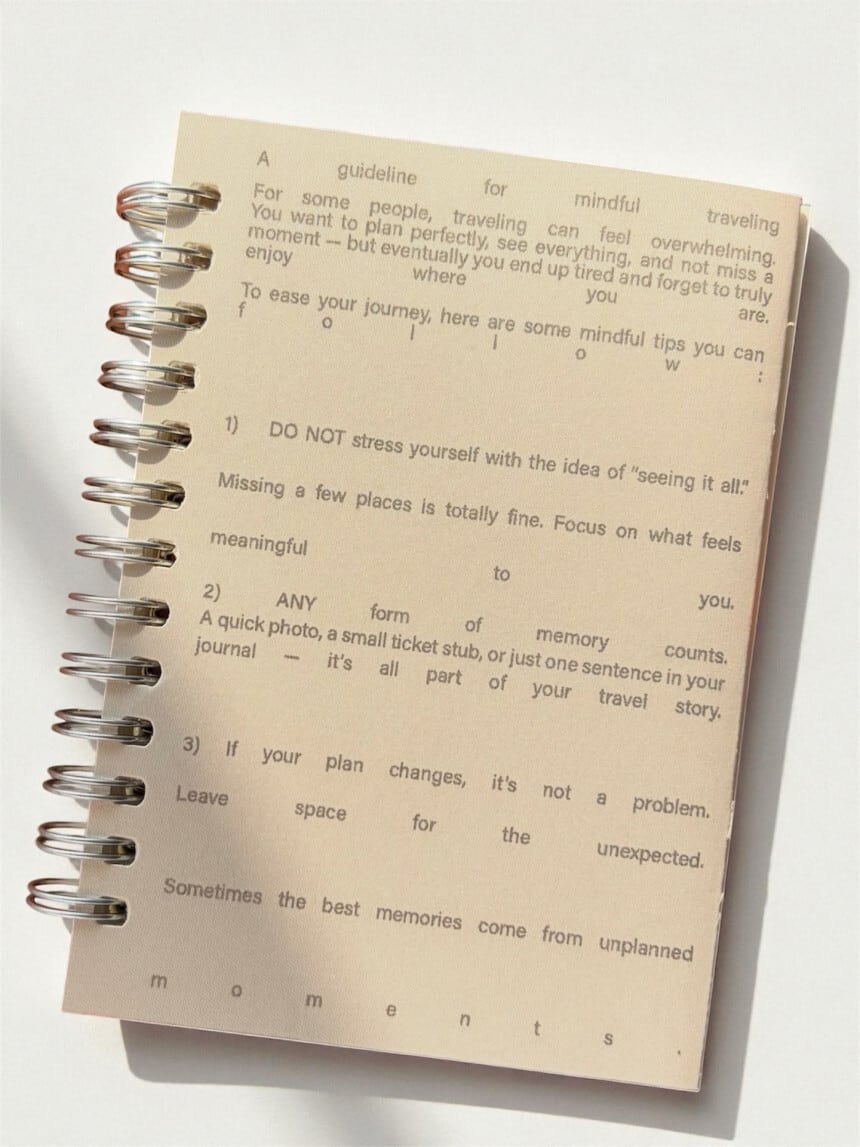 A guideline for mindful traveling
For some people, traveling can feel overwhelming.
You want to plan perfectly, see everything, and not miss a
moment — but eventually you end up tired and forget to truly
enjoy where you are.
To ease your journey, here are some mindful tips you can
f o l l o w :
1) DO NOT stress yourself with the idea of “seeing it all.”
Missing a few places is totally fine. Focus on what feels
meaningful to you.
2) ANY form of memory counts.
A quick photo, a small ticket stub, or just one sentence in your
journal — it's all part of your travel story.
3) If your plan changes, it's not a problem.
Leave space for the unexpected.
Sometimes the best memories come from unplanned
m o m e n t s .